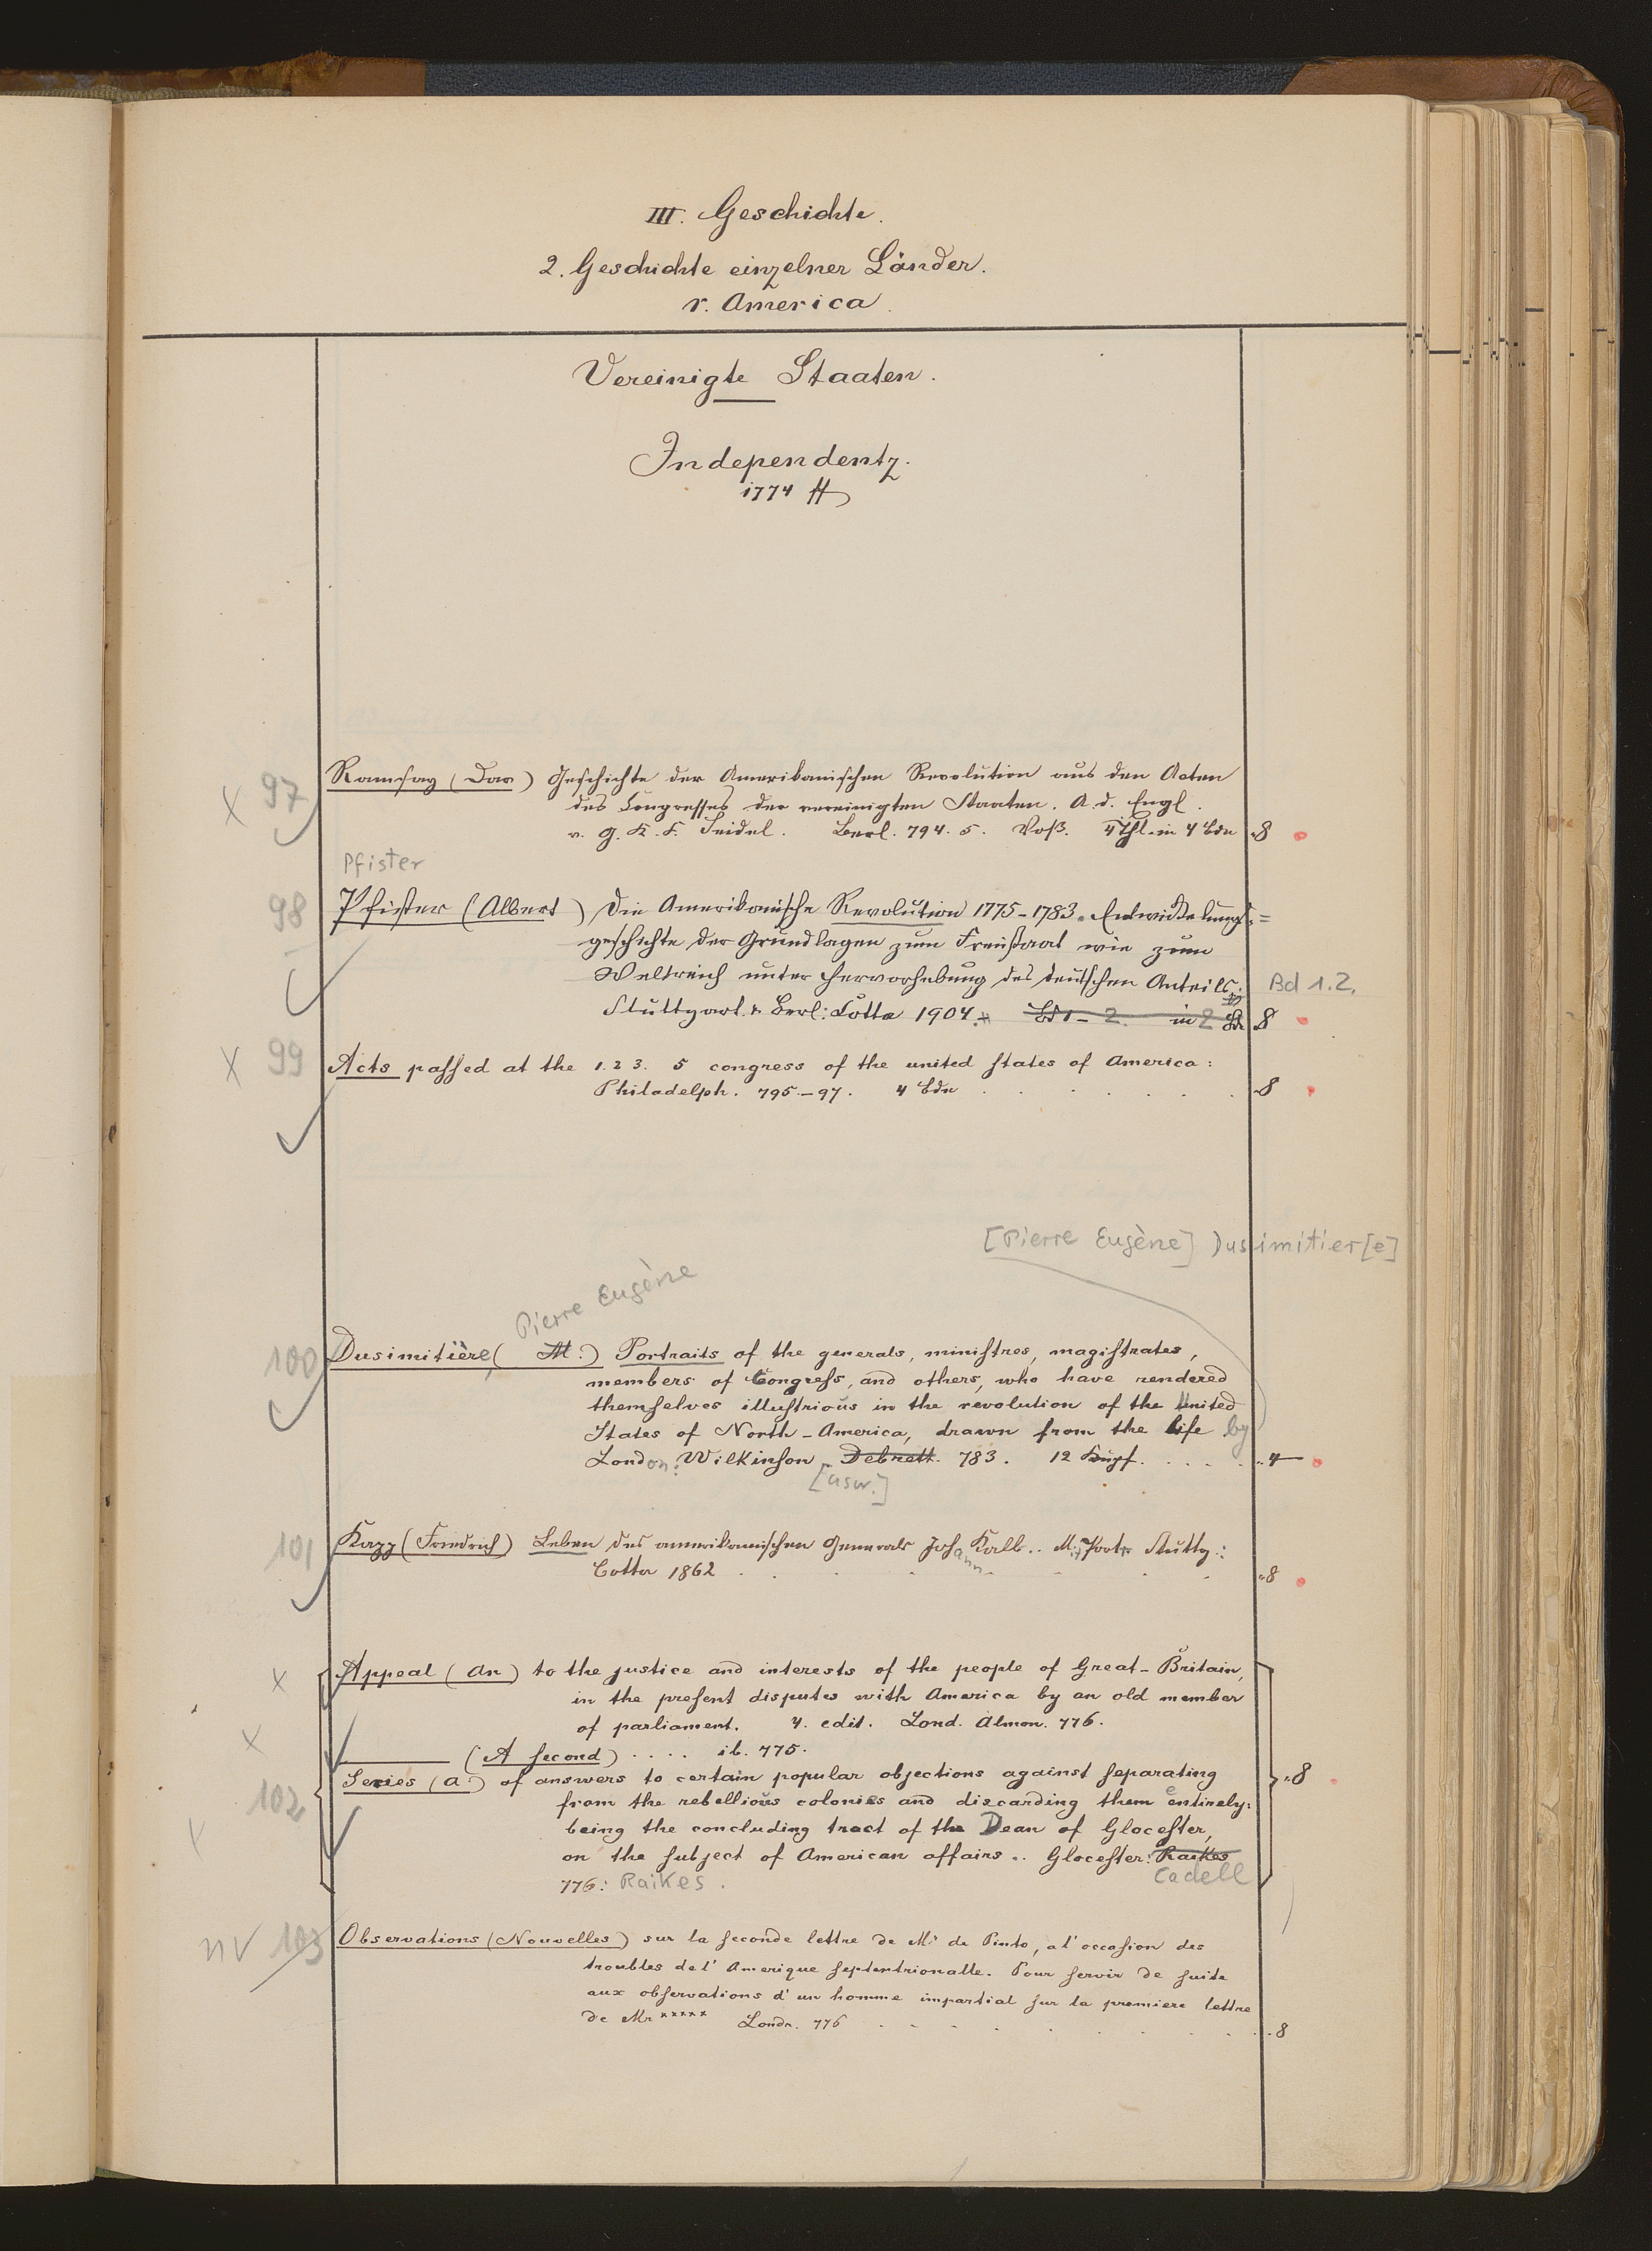 III. Geschichte.
2. Geschichte einzelner Länder.
r. America.
Vereinigte Staaten.
Independentz.
1774 ff
97 Ramsay (Dav) Geschichte der Amerikanischen Revolution aus den Acten
des Congresses der vereinigten Staaten. A. d. Engl.
v. G. K. F. Seidel. Berl. 794. 5. Voß. 4 Thl. in 4 Bdn 8
Pfister
98 Pfister (Albert) Die Amerikanische Revolution 1775-1783. Entwickelungs=
geschichte der Grundlagen zum Freistaat wie zum
Weltreich unter Hervorhebung des deutschen Anteils: Bd 1.2.
Stuttgart. & Berl: Cotta 1904. Bd 1-2. in 2 Bd 8
99 Acts passed at the 1. 2 3. 5 congress of the united states of America:
Philadelph. 795-97. 4 Bdn 8
[Pierre Eugène] Dusimitier[e]
Pierre Eugène
100 Dusimitière, (M.) Portraits of the generals, ministres, magistrates,
members of Congress, and others, who have rendered
themselves illustrious in the revolution of the United
States of North-America, drawn from the life by
London: Wilkinson Debrett. 783. 12 Kupf. 4
[usw.]
101 Kapp (Friedrich) Leben des amerikanischen Generals Johann Kalb.. M. Portr. Stuttg.:
Cotta 1862 8
Appeal (An) to the justice and interests of the people of Great-Britain,
in the present disputes with America by an old member
of parliament. 4. edit. Lond. Almon. 776.
(A second) .... ib. 775.
102 Series (a) of answers to certain popular objections against separating 8
from the rebellious colonies and discarding them entirely:
being the concluding tract of the Dean of Glocester,
on the subject of American affairs.. Glocester: Raikes
Cadell
776: Raikes.
nv 103 Observations (Nouvelles) sur la seconde lettre de Mr de Pinto, a l'occasion des
troubles de l' Amerique septentrionalle. Pour servir de suite
aux observations d' un homme impartial sur la premiere lettre
de Mr ***** Londr. 776 8